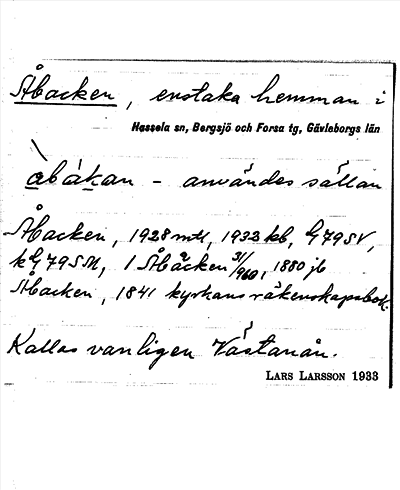 Åbacken, enstaka hemman i
Hassela sn, Bergsjö och Forsa tg, Gävleborgs län
àbákan - användes sällan
Åbacken, 1928 mtl, 1933 kb, G79SV,
kG79SM, 1 Åbacken 31/960, 1880 jb
Åbacken, 1841 kyrkans räkenskapsbok.
Kallas vanligen Västanån.
LARS LARSSON 1933